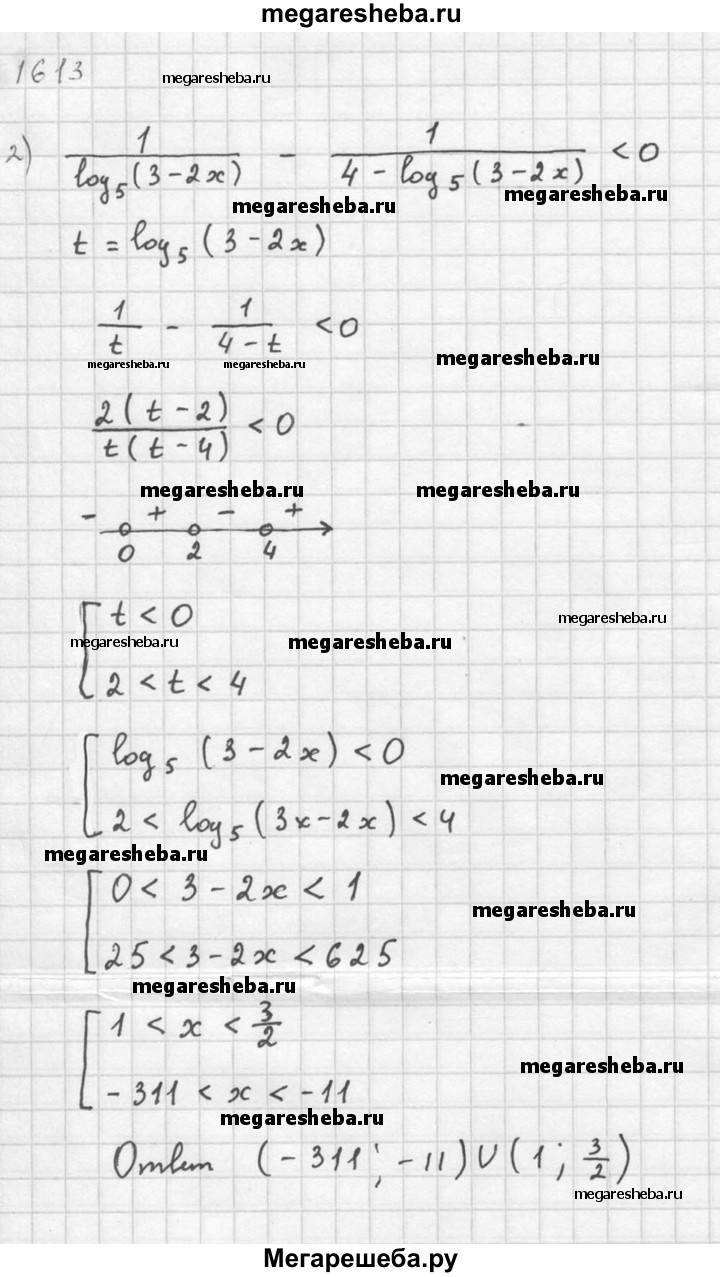 megaresheba.ru
1613 megaresheba.ru
2) 1/log₅(3-2x) - 1/(4-log₅(3-2x)) < 0
megaresheba.ru megaresheba.ru
t = log₅(3-2x)
1/t - 1/(4-t) < 0
megaresheba.ru megaresheba.ru megaresheba.ru
2(t-2)/t(t-4) < 0
megaresheba.ru megaresheba.ru
- + - +
0 2 4
[ t < 0
megaresheba.ru megaresheba.ru megaresheba.ru
2 < t < 4
[ log₅(3-2x) < 0
megaresheba.ru
2 < log₅(3x-2x) < 4
megaresheba.ru
[ 0 < 3-2x < 1
megaresheba.ru
25 < 3-2x < 625
megaresheba.ru
[ 1 < x < 3/2
megaresheba.ru
-311 < x < -11
megaresheba.ru
Ответ (-311; -11)∪(1; 3/2)
megaresheba.ru
Мегарешеба.ру